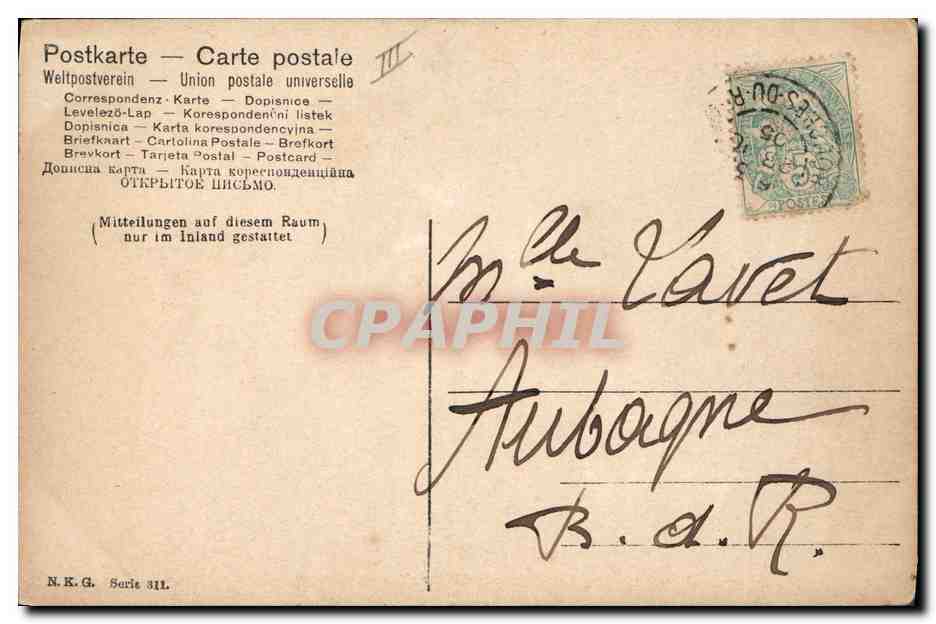 Postkarte — Carte postale
III
Weltpostverein — Union postale universelle
Correspondenz-Karte — Dopisnice —
Levelező-Lap — Korespondenční listek
Dopisnica — Karta korespondencyjna —
Briefkaart — Cartolina Postale — Brefkort
Brevkort — Tarjeta Postal — Postcard —
Дописна карта — Карта кореспонденційна
ОТКРЫТОЕ ПИСЬМО.
(Mitteilungen auf diesem Raum
nur im Inland gestattet)
POSTES
Mlle Tavet
CPAPHIL
Aubagne
B. d. R.
N. K. G. Serie 311.